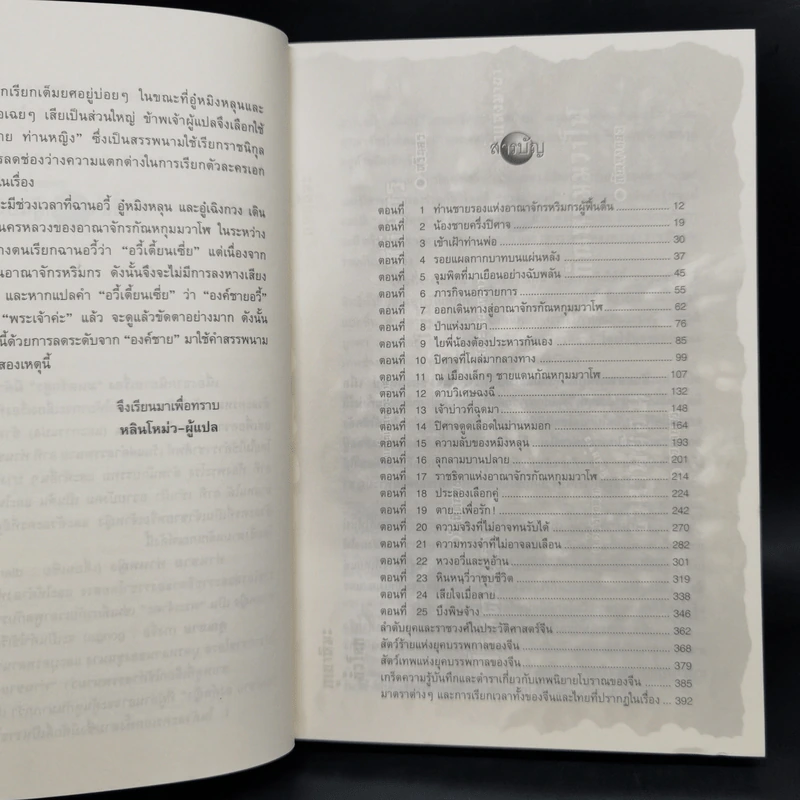 กเรียกเต็มยศอยู่บ่อยๆ ในขณะที่อู๋หมิงหลุนและ
อเฉยๆ เสียเป็นส่วนใหญ่ ข้าพเจ้าผู้แปลจึงเลือกใช้
าย ท่านหญิง” ซึ่งเป็นสรรพนามใช้เรียกราชนิกุล
รลดช่องว่างความแตกต่างในการเรียกตัวละครเอก
ในเรื่อง
ะมีช่วงเวลาที่ฉานอวี้ อู๋หมิงหลุน และอู๋เฉิงกวง เดิน
นครหลวงของอาณาจักรกัณหกุมมวาโพ ในระหว่าง
างตนเรียกฉานอวี้ว่า “อวี้เตี้ยนเซี่ย” แต่เนื่องจาก
นอาณาจักรหริมกร ดังนั้นจึงจะไม่มีการลงหางเสียง
และหากแปลคำ “อวี้เตี้ยนเซี่ย” ว่า “องค์ชายอวี้”
“พระเจ้าค่ะ” แล้ว จะดูแล้วขัดตาอย่างมาก ดังนั้น
นี้ด้วยการลดระดับจาก “องค์ชาย” มาใช้คำสรรพนาม
สองเหตุนี้
จึงเรียนมาเพื่อทราบ
หลินโหม่ว-ผู้แปล
สารบัญ
ตอนที่ 1 ท่านชายรองแห่งอาณาจักรหริมกรผู้ฟื้นตื่น 12
ตอนที่ 2 น้องชายครึ่งปีศาจ 19
ตอนที่ 3 เข้าเฝ้าท่านพ่อ 30
ตอนที่ 4 รอยแผลกากบาทบนแผ่นหลัง 37
ตอนที่ 5 จุมพิตที่มาเยือนอย่างฉับพลัน 45
ตอนที่ 6 ภารกิจนอกรายการ 55
ตอนที่ 7 ออกเดินทางสู่อาณาจักรกัณหกุมมวาโพ 62
ตอนที่ 8 ป่าแห่งมายา 76
ตอนที่ 9 ไยพี่น้องต้องประหารกันเอง 85
ตอนที่ 10 ปีศาจที่โผล่มากลางทาง 99
ตอนที่ 11 ณ เมืองเล็กๆ ชายแดนกัณหกุมมวาโพ 107
ตอนที่ 12 ดาบวิเศษฉงฉี 132
ตอนที่ 13 เจ้าบ่าวที่ฉุดมา 148
ตอนที่ 14 ปีศาจดูดเลือดในม่านหมอก 164
ตอนที่ 15 ความลับของหมิงหลุน 193
ตอนที่ 16 ลุกลามบานปลาย 201
ตอนที่ 17 ราชธิดาแห่งอาณาจักรกัณหกุมมวาโพ 214
ตอนที่ 18 ประลองเลือกคู่ 224
ตอนที่ 19 ตาย...เพื่อรัก! 242
ตอนที่ 20 ความจริงที่ไม่อาจทนรับได้ 270
ตอนที่ 21 ความทรงจำที่ไม่อาจลบเลือน 282
ตอนที่ 22 หวงอวี่และหูอ้าน 301
ตอนที่ 23 หินหนฺวี่วาชุบชีวิต 319
ตอนที่ 24 เสียใจเมื่อสาย 338
ตอนที่ 25 บึงพิษจ้าง 346
ลำดับยุคและราชวงศ์ในประวัติศาสตร์จีน 362
สัตว์ร้ายแห่งยุคบรรพกาลของจีน 368
สัตว์เทพแห่งยุคบรรพกาลของจีน 379
เกร็ดความรู้บันทึกและตำราเกี่ยวกับเทพนิยายโบราณของจีน 385
มาตราต่างๆ และการเรียกเวลาทั้งของจีนและไทยที่ปรากฏในเรื่อง 392